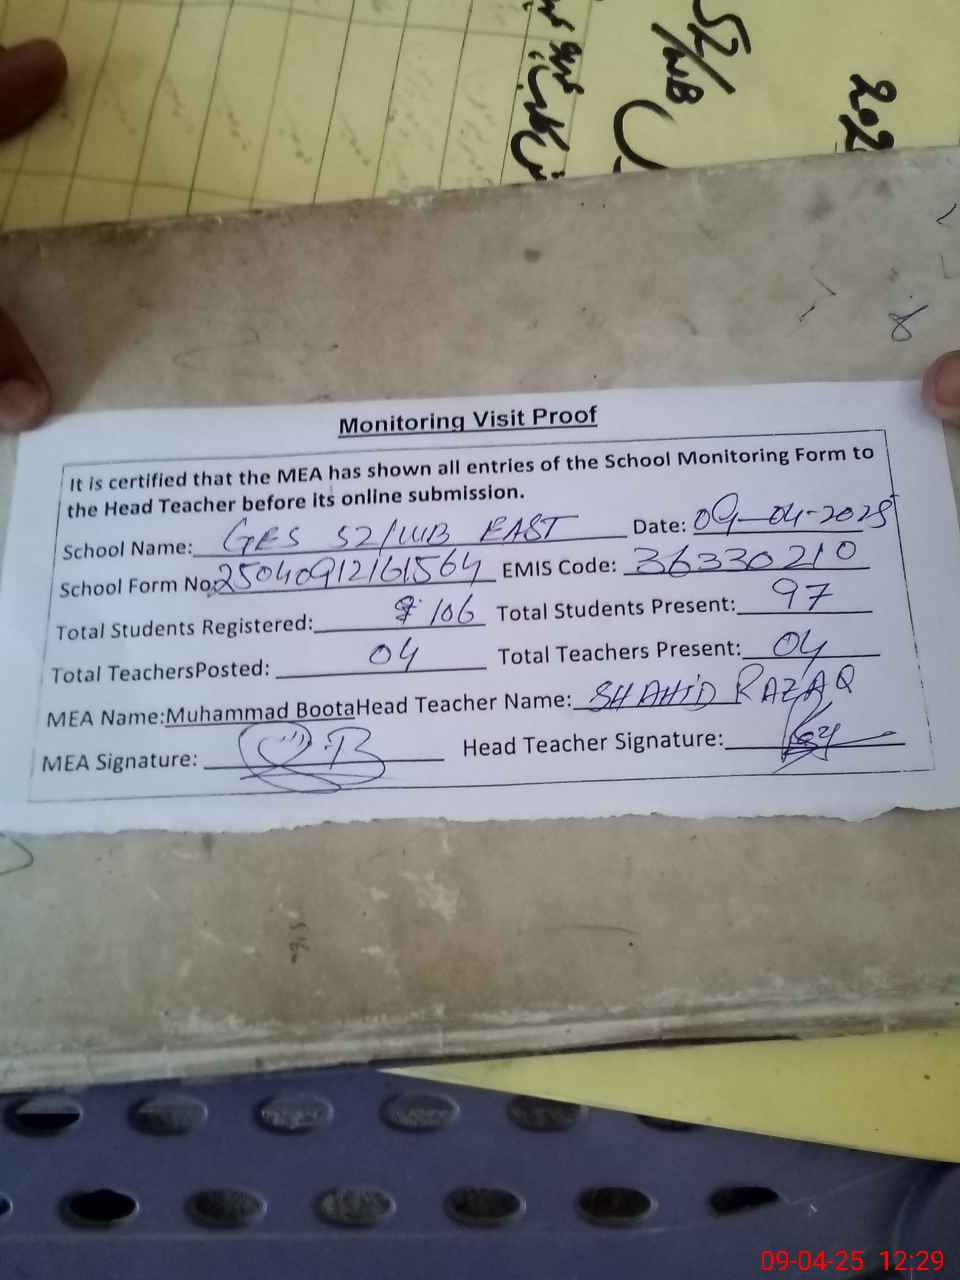 52/WB
202
Monitoring Visit Proof
It is certified that the MEA has shown all entries of the School Monitoring Form to
the Head Teacher before its online submission.
School Name: GES 52/WB EAST Date: 09-04-2025
School Form No: 25040912161564 EMIS Code: 36330210
Total Students Registered: 106 Total Students Present: 97
Total TeachersPosted: 04 Total Teachers Present: 04
MEA Name:Muhammad Boota Head Teacher Name: SHAHiD RAZAQ
MEA Signature: Head Teacher Signature:
09-04-25 12:29